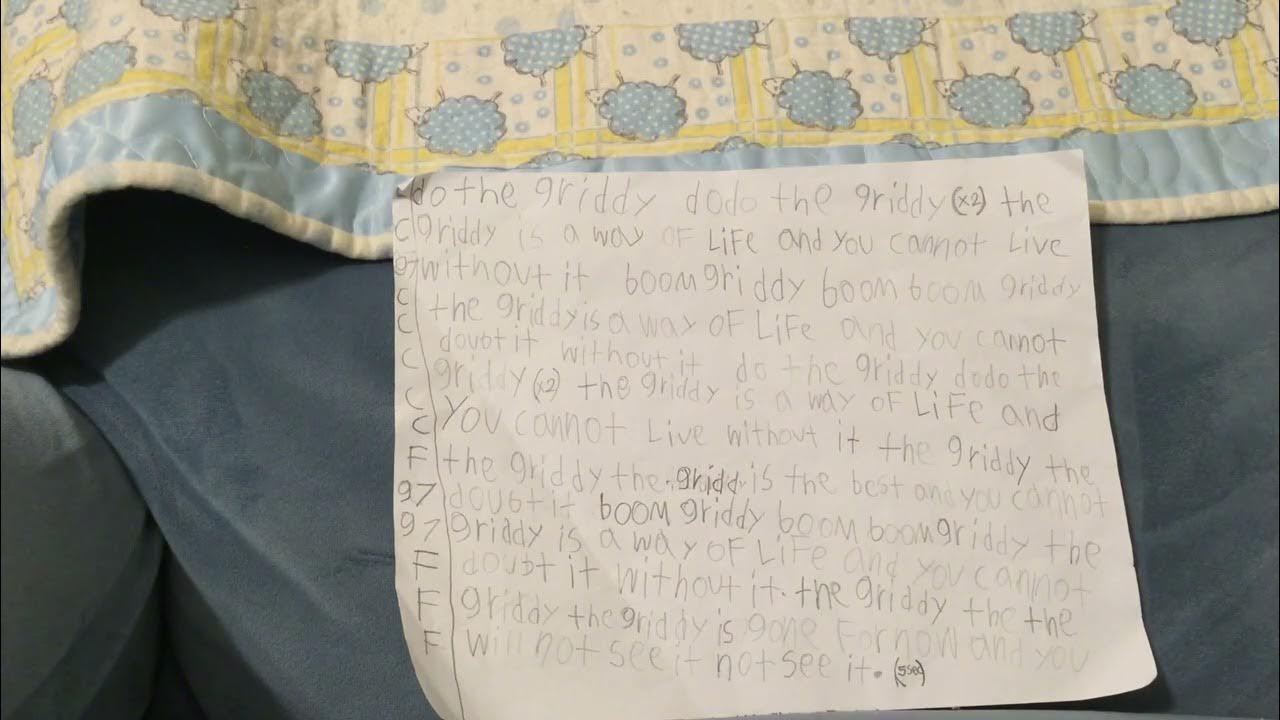 do the griddy dodo the griddy (x2) the
C griddy is a way OF LiFe and you cannot Live
97 without it boom griddy boom boom griddy
C the griddy is a way OF LiFe and you cannot
C doubt it without it do the griddy dodo the
C griddy (x2) the griddy is a way OF LiFe and
C
C you cannot Live without it the griddy the
F the griddy the griddy is the best and you cannot
97 doubt it boom griddy boom boom griddy the
97 griddy is a way OF LiFe and you cannot
F doubt it without it. the griddy the the
F griddy the griddy is gone For now and you
F will not see it not see it. (5sec)